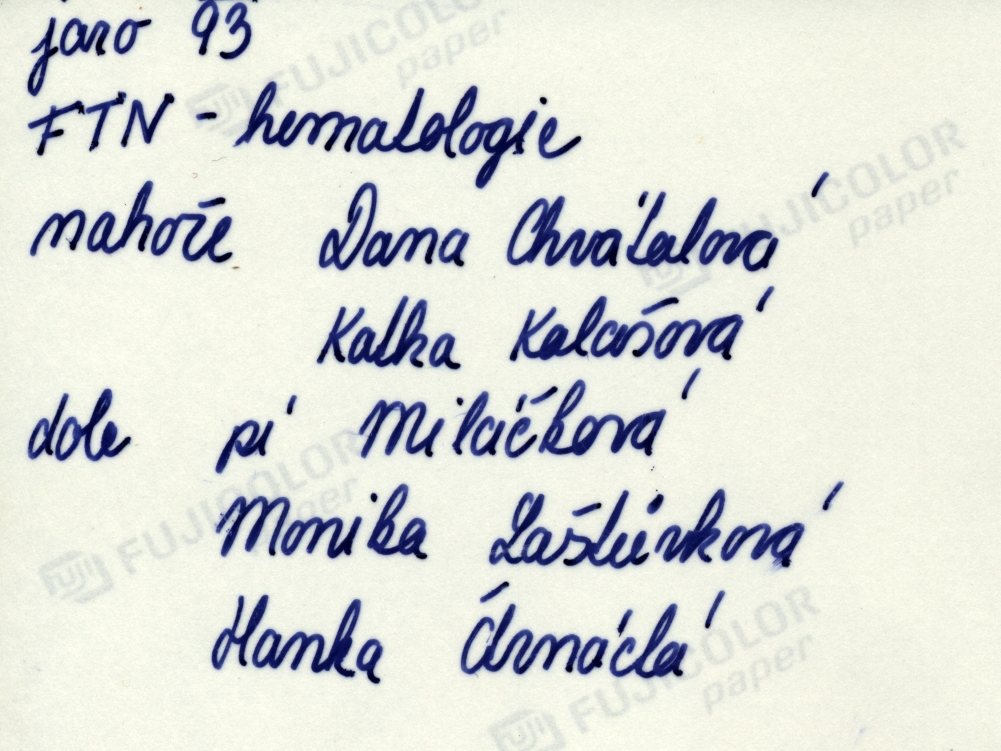 jaro 93
FTN - hematologie
nahoře Dana Chvátalová
Katka Kalašová
dole pí Miláčková
Monika Laštůvková
Hanka
FUJICOLOR
paper
FUJICOLOR
paper
FUJICOLOR
paper
FUJICOLOR
paper